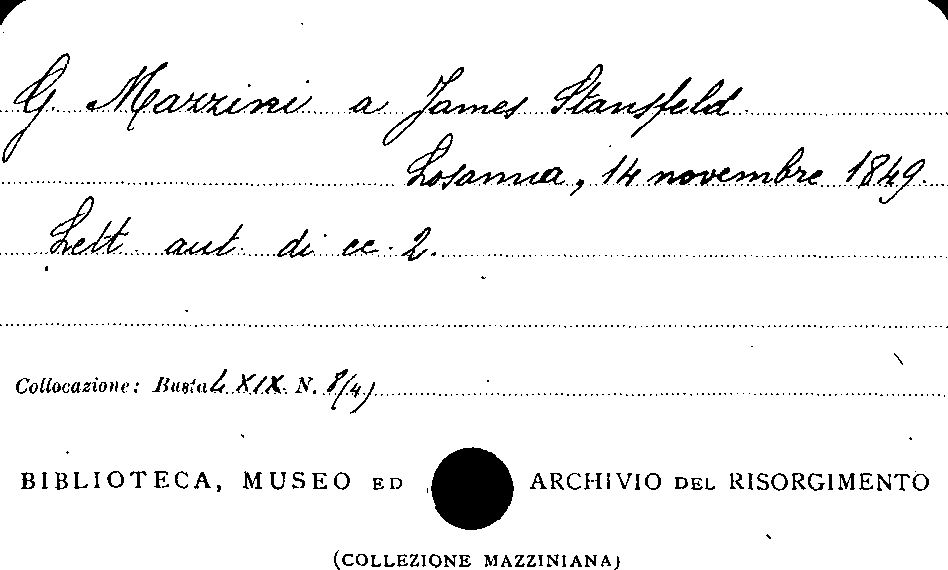 G. Mazzini a James Stansfeld.
Losanna, 14 novembre 1849.
Lett. aut. di cc. 2.
Collocazione: Busta LXIX. N. 8/4)
BIBLIOTECA, MUSEO ED ARCHIVIO DEL RISORGIMENTO
(COLLEZIONE MAZZINIANA)